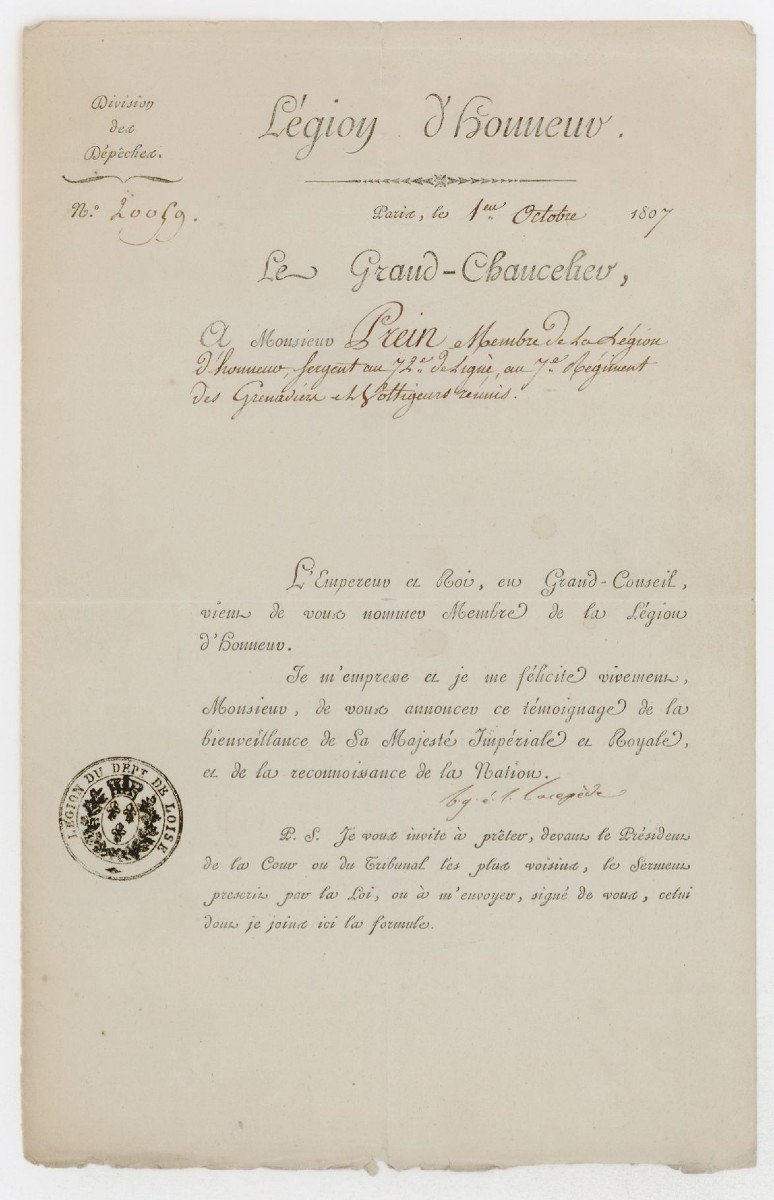 Division
des
Dépêches.
Légion d'honneur.
N.o 20059.
Paris, le 1er. Octobre 1807
Le Grand-Chancelier,
A Monsieur Prein, Membre de La Légion
d'honneur, Sergent au 72e. de Ligne, au 7e. Régiment
des Grenadiers et Voltigeurs réunis.
L'Empereur et Roi, en Grand-Conseil,
vient de vous nommer Membre de la Légion
d'honneur.
Je m'empresse et je me félicite vivement,
Monsieur, de vous annoncer ce témoignage de la
bienveillance de Sa Majesté Impériale et Royale,
et de la reconnoissance de la Nation.
b. g. é. l. Lacepède
LÉGION DU DEPT DE LOISE
P. S. Je vous invite à prêter, devant le Président
de la Cour ou du Tribunal les plus voisins, le Serment
prescrit par la Loi, ou à m'envoyer, signé de vous, celui
dont je joins ici la formule.